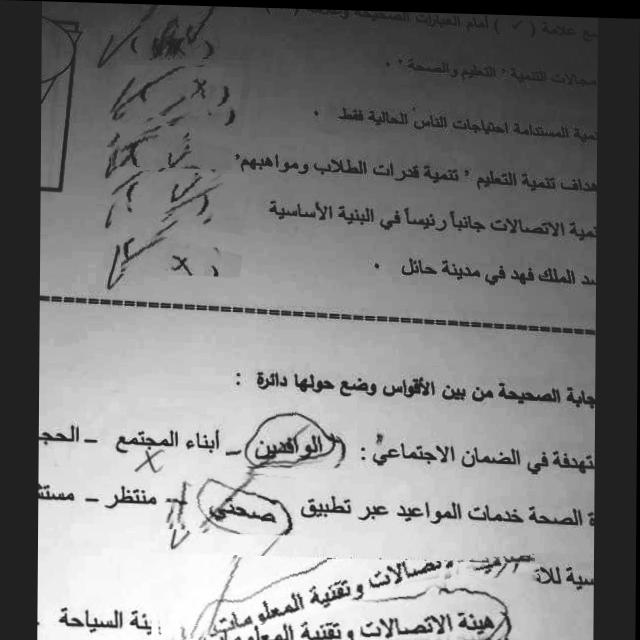 ع علامة ( ✓ ) أمام العبارات الصحيحة
مجالات التنمية " التعليم والصحة " .
مية المستدامة احتياجات الناس الحالية فقط .
هداف تنمية التعليم " تنمية قدرات الطلاب ومواهبهم"
مية الاتصالات جانباً رئيساً في البنية الأساسية
د الملك فهد في مدينة حائل .
جابة الصحيحة من بين الأقواس وضع حولها دائرة :
تهدفة في الضمان الاجتماعي : ( الوافدين – أبناء المجتمع – الحج
ة الصحة خدمات المواعيد عبر تطبيق ( صحتي – منتظر –
صالات وتقنية المعلومات
هيئة الاتصالات وتقنية المعلومات يئة السياحة